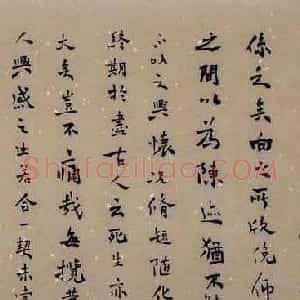 係之矣向之所欣俛仰
之間以為陳迹猶不
不以之興懷况脩短随化
終期於盡古人云死生亦
大矣豈不痛哉每攬昔
人興感之由若合一契未嘗
Shufaziliao.com